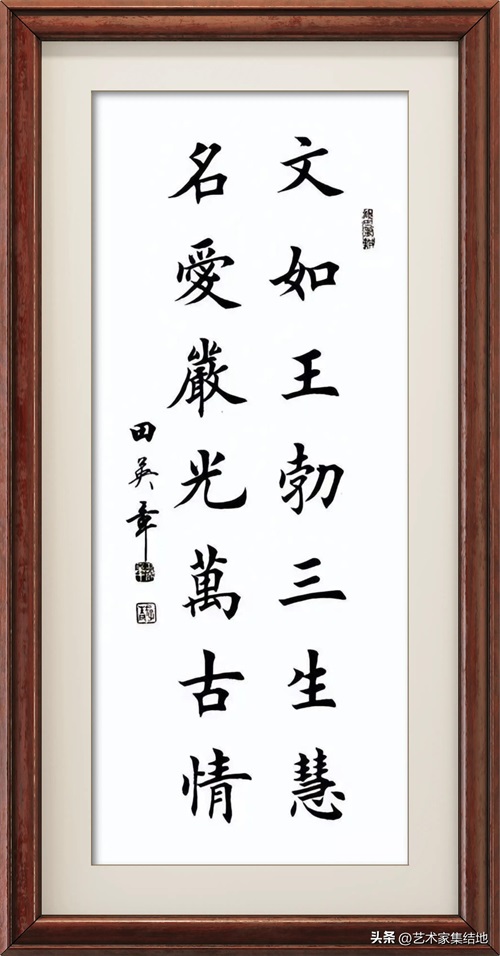 文如王勃三生慧
名愛嚴光萬古情
田英章
头条 @艺术家集结地